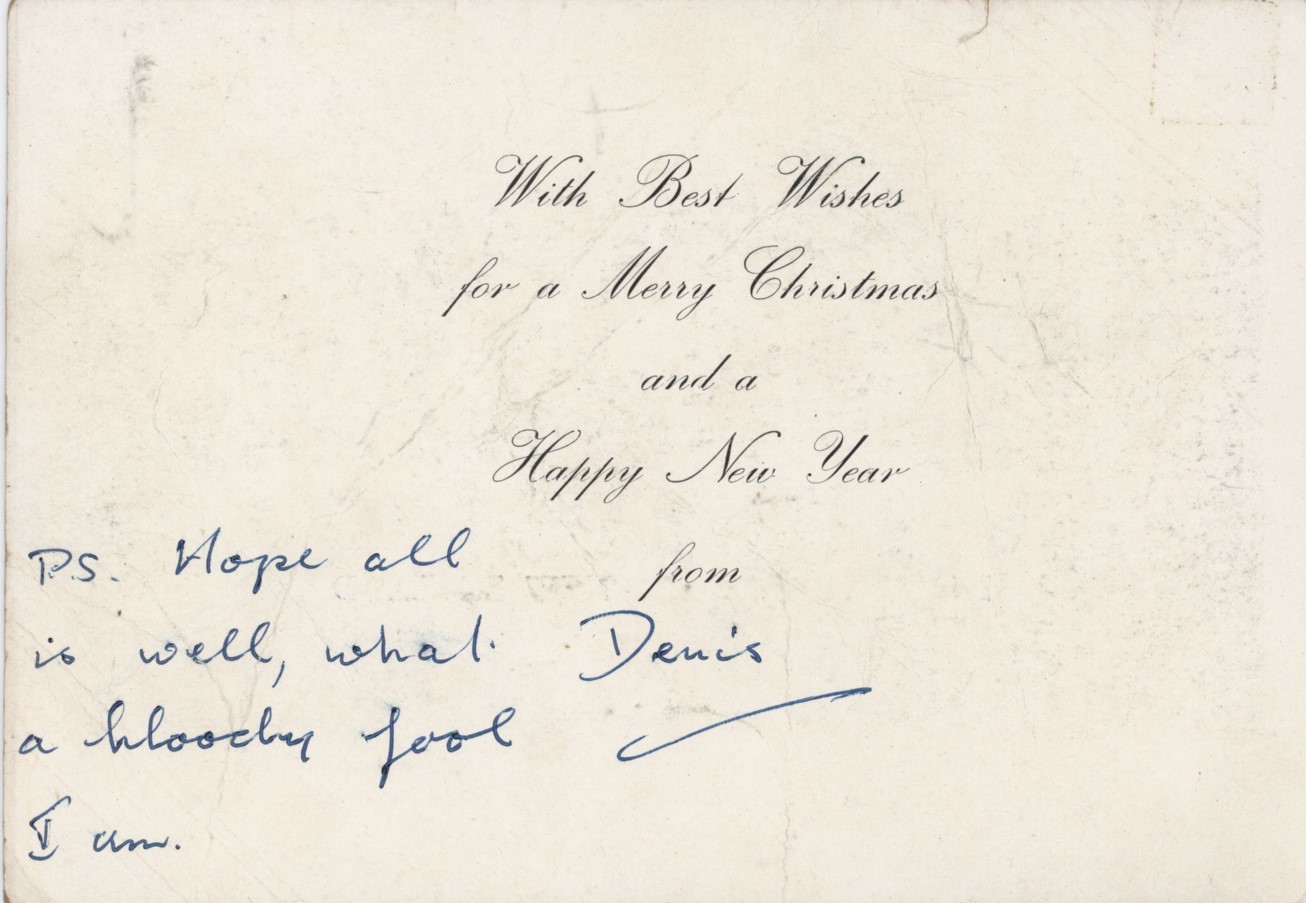 With Best Wishes
for a Merry Christmas
and a
Happy New Year
from
Denis
P.S. Hope all
is well, what
a bloody fool
I am.